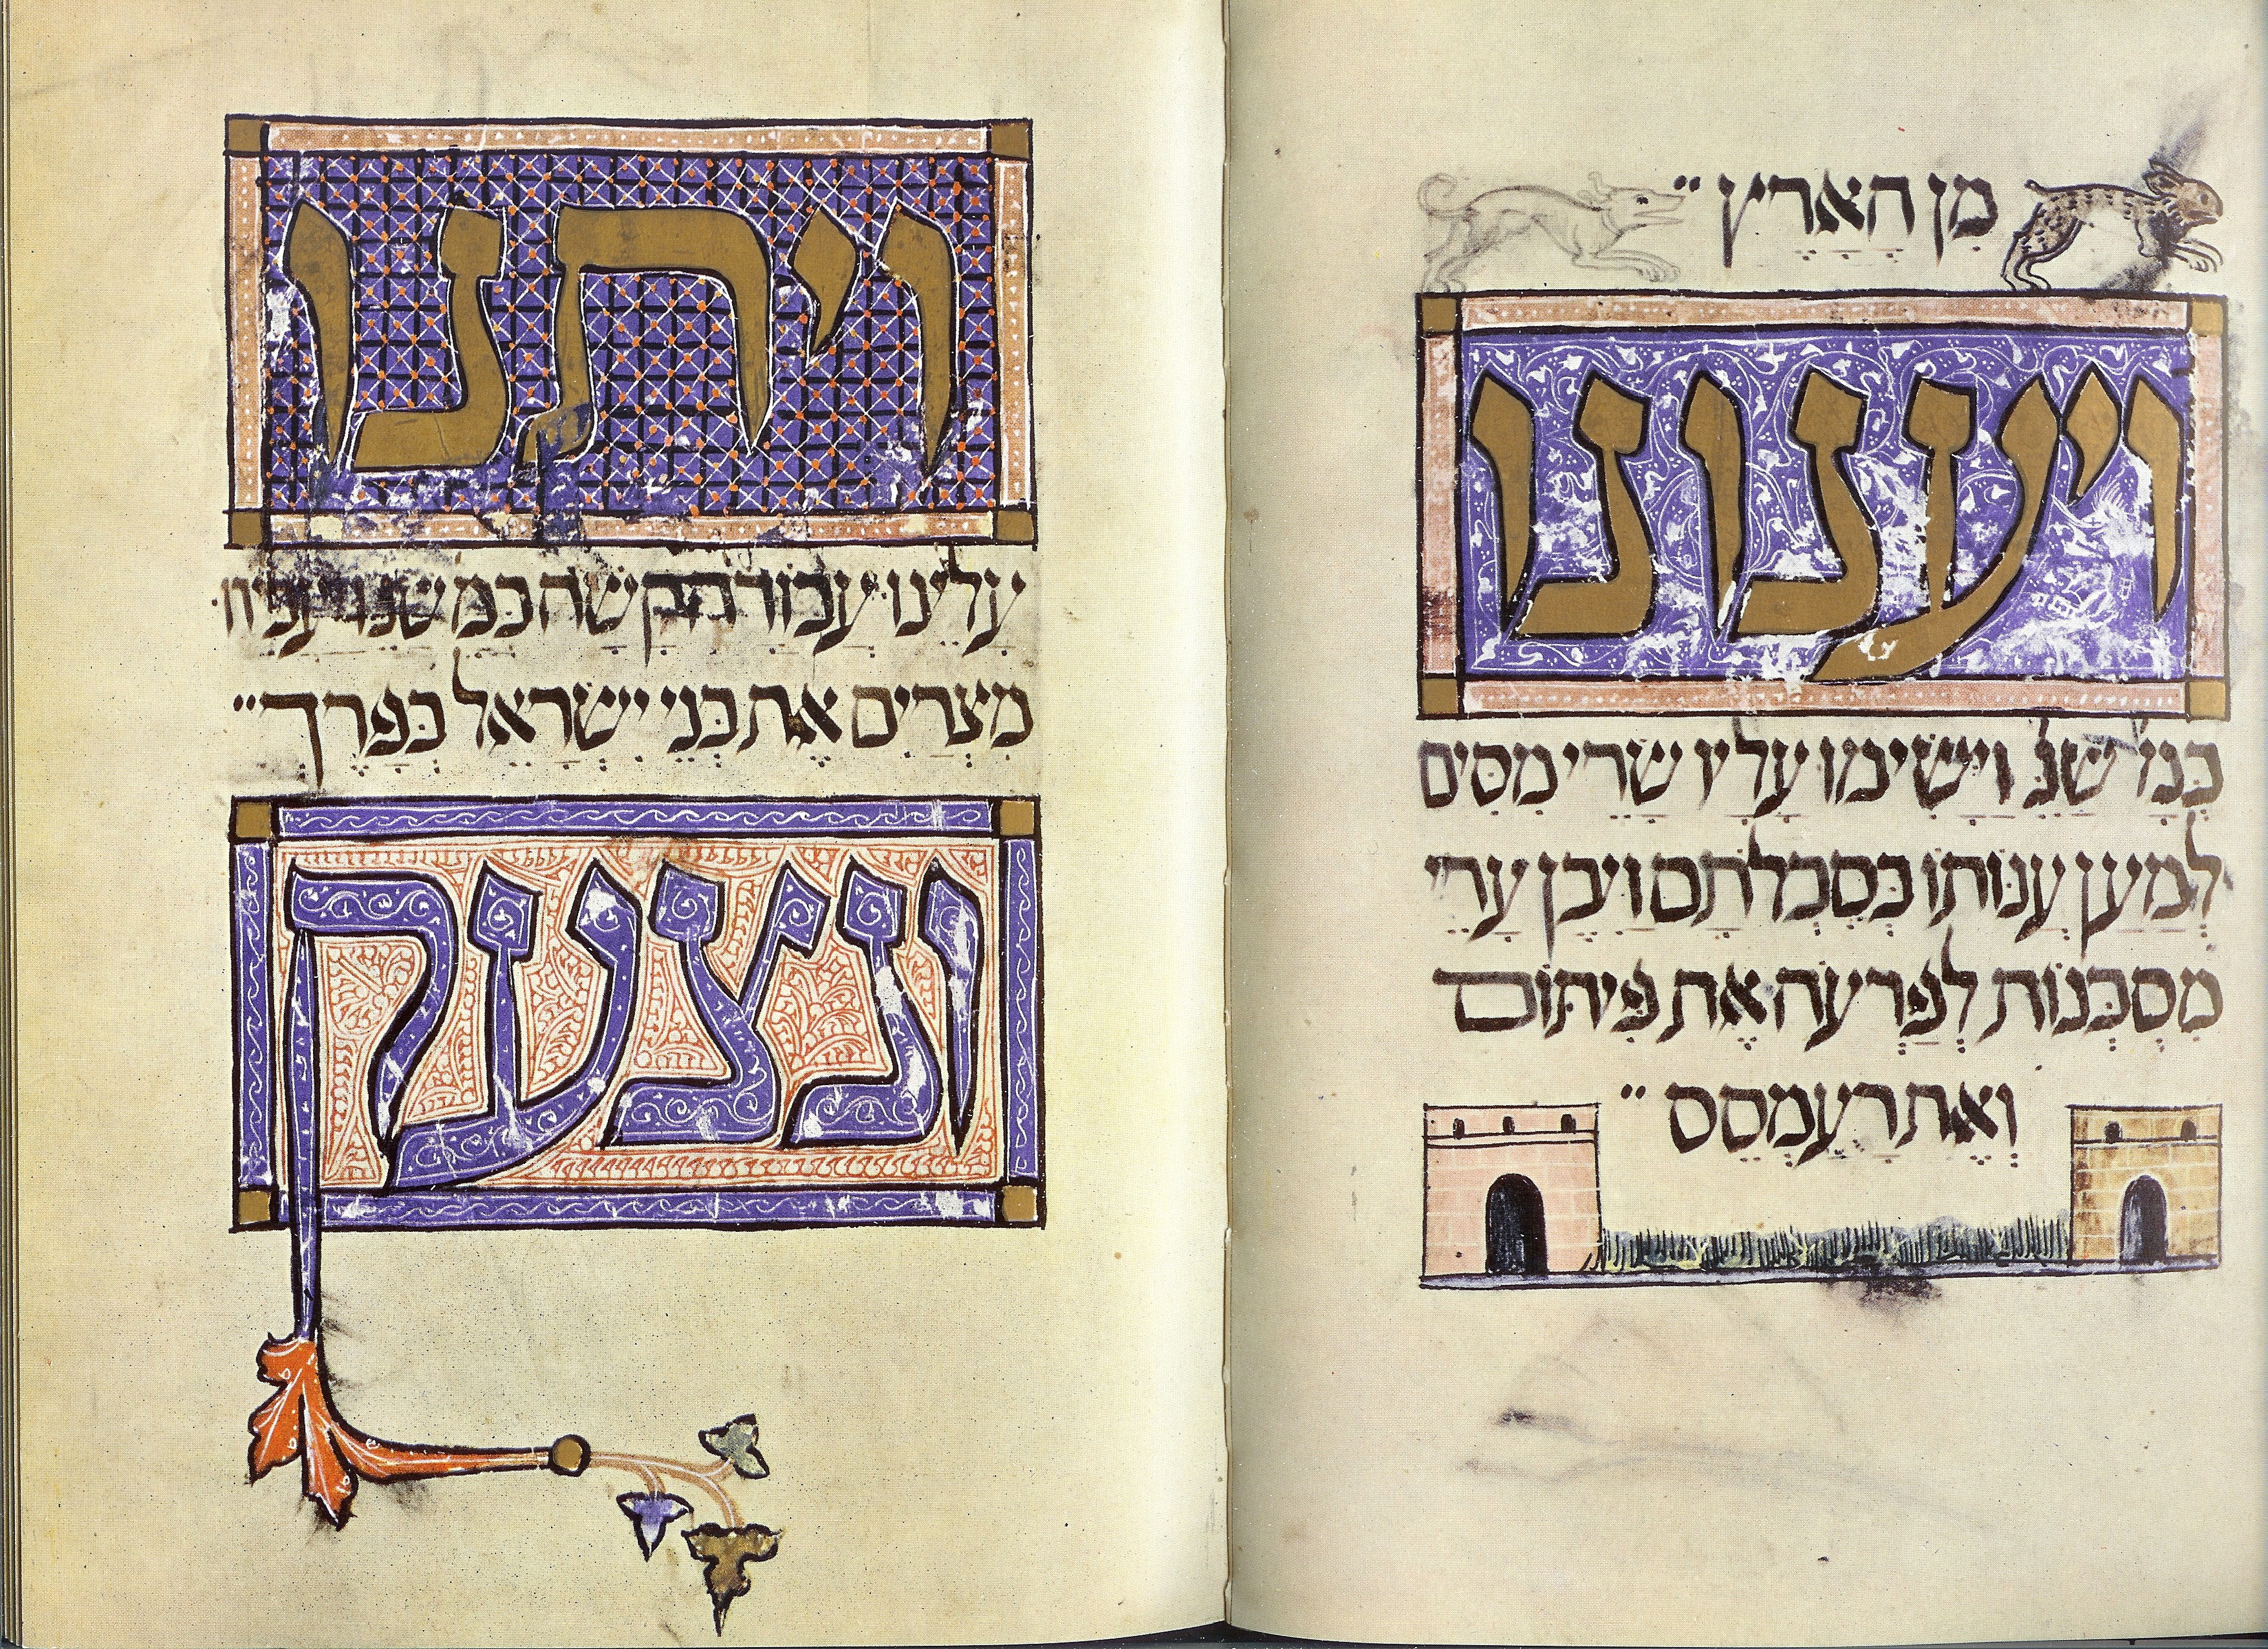 מִן הָאָרֶץ ״
ויענונו
כְּמוֹ שֶׁנֶּ וַיָּשִׂימוּ עָלָיו שָׂרֵי מִסִּים
לְמַעַן עַנּוֹתוֹ בְּסִבְלֹתָם וַיִּבֶן עָרֵי
מִסְכְּנוֹת לְפַרְעֹה אֶת פִּיתוֹם
וְאֶת רַעַמְסֵס ״
ויתנו
עָלֵינוּ עֲבוֹדָה קָשָׁה כְּמ שֶׁנֶּ
מִצְרַיִם אֶת בְּנֵי יִשְׂרָאֵל בְּפָרֶךְ ״
ונצעק